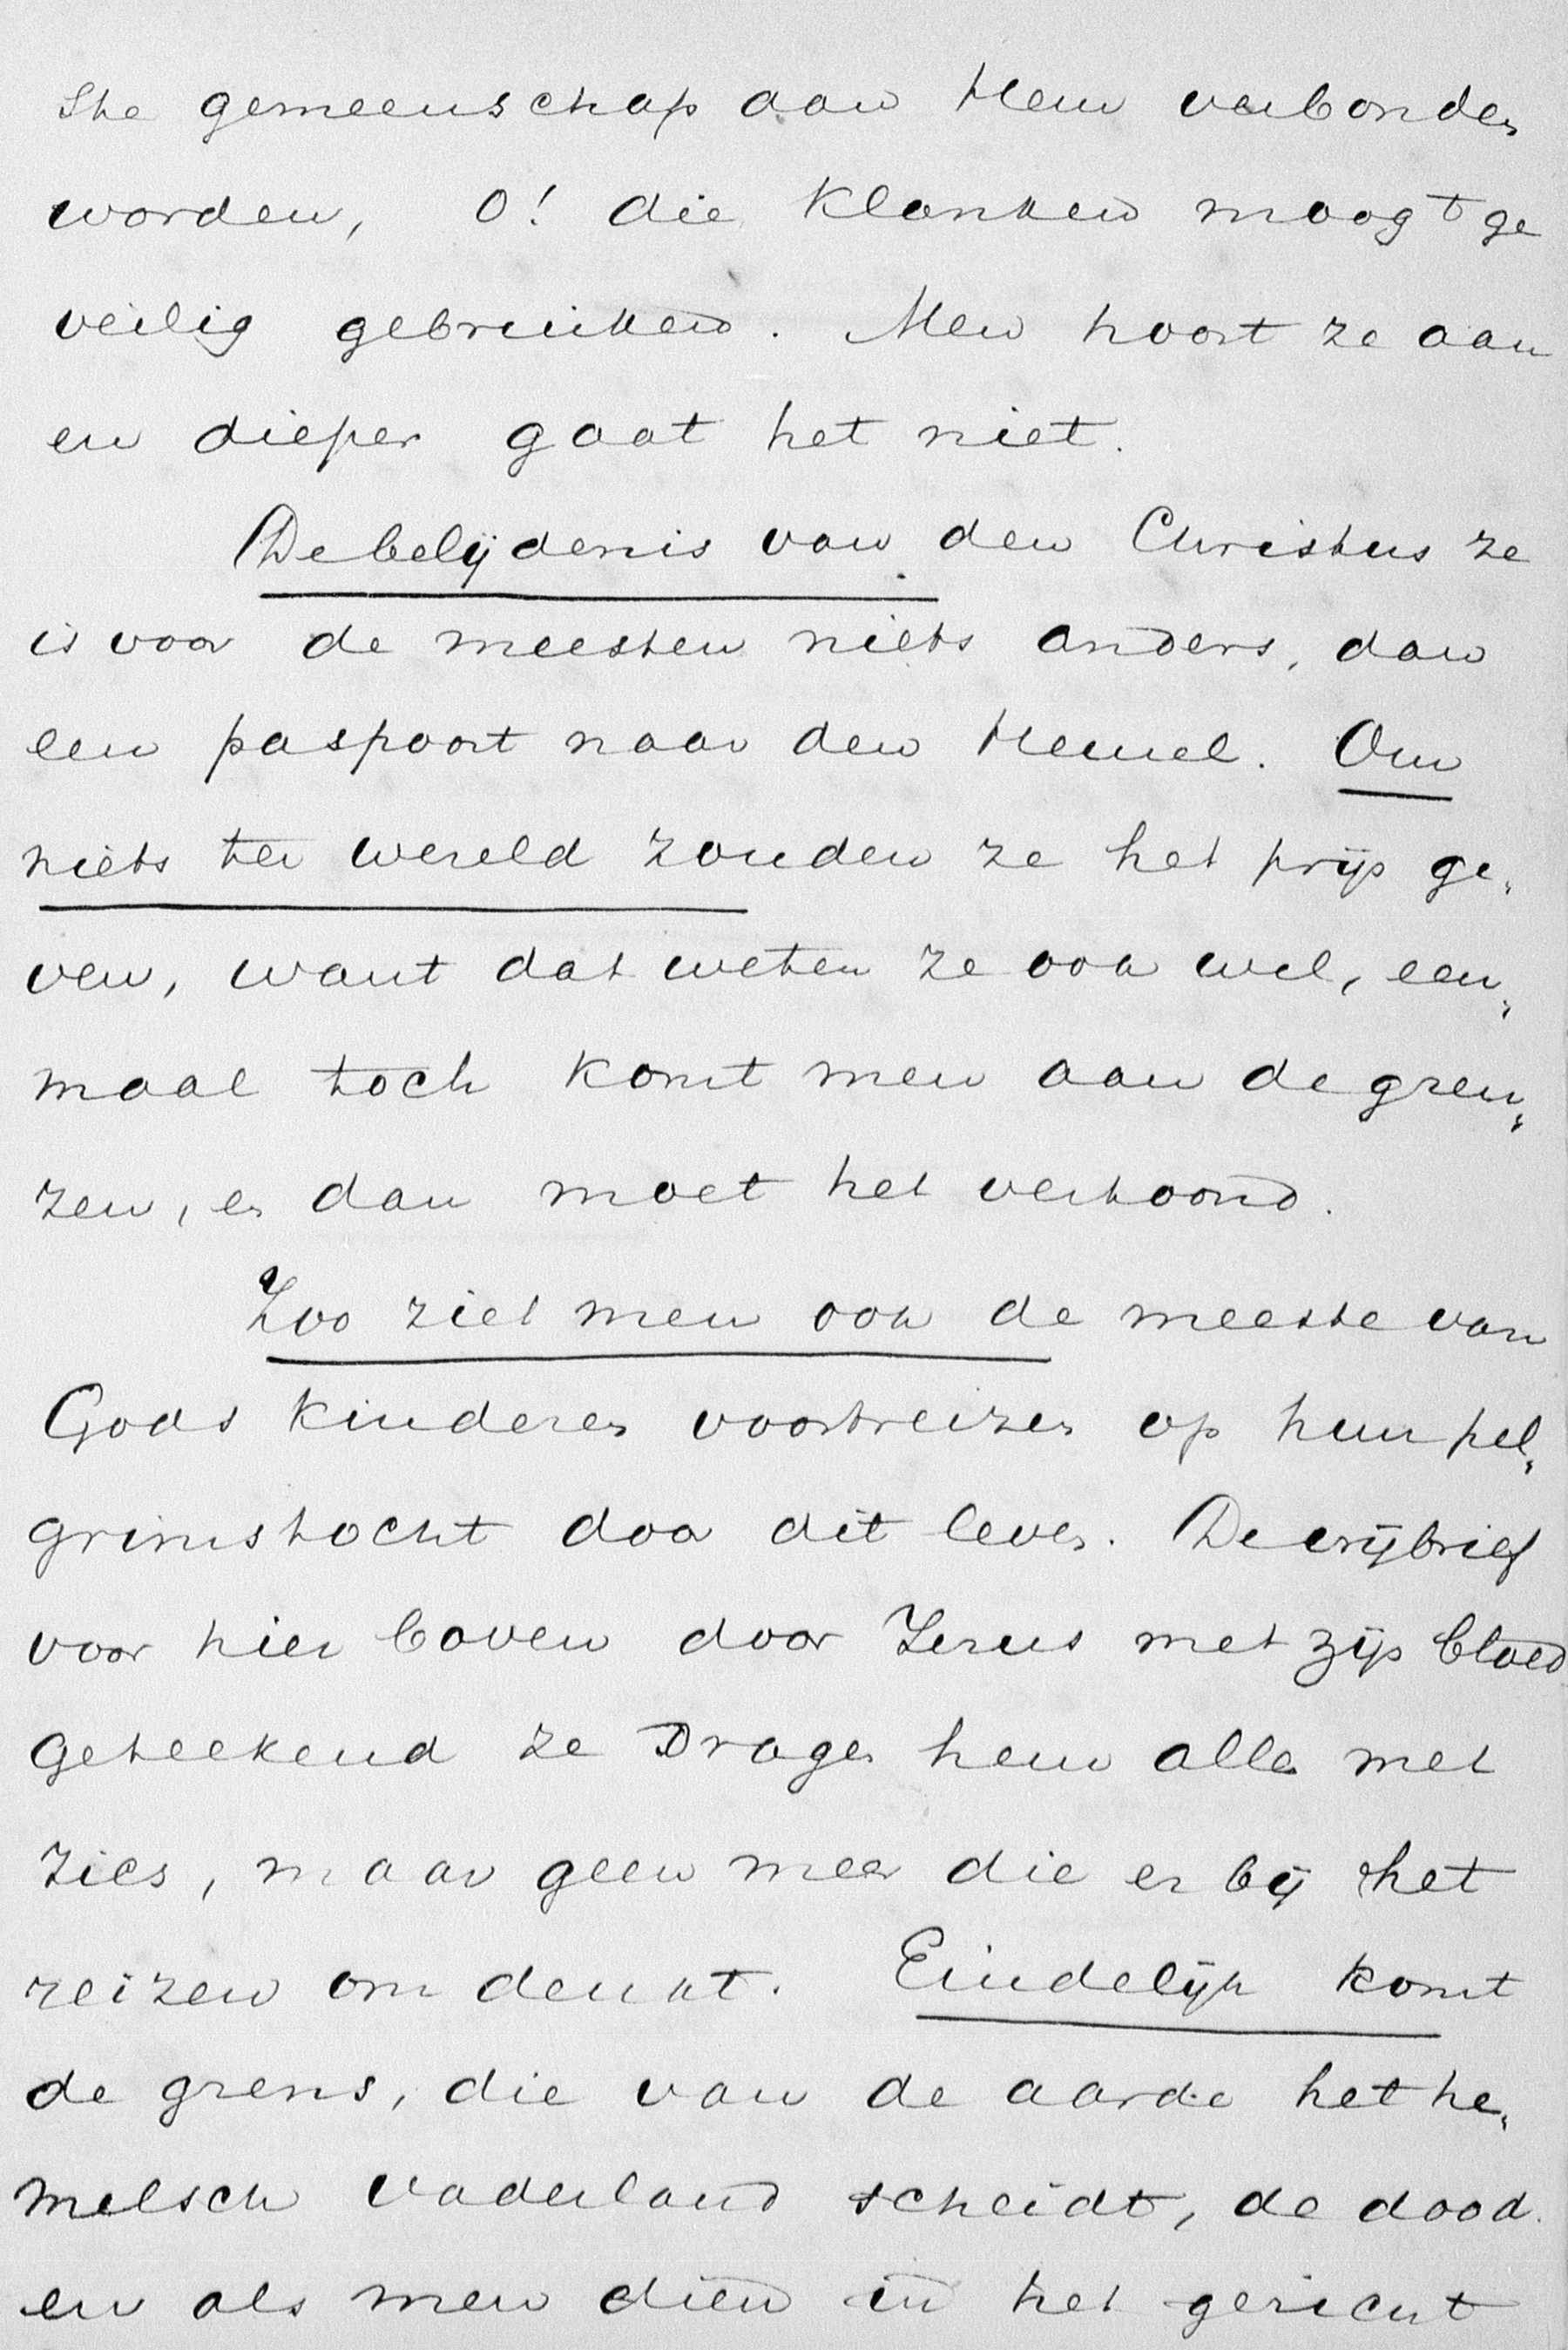 ste gemeenschap aan Hem verbonden
worden, O! die klanken moogt ge
veilig gebruiken. Men hoort ze aan
en dieper gaat het niet.
De belijdenis van den Christus ze
is voor de meesten niets anders, dan
een paspoort naar den Hemel. Om
niets ter wereld zouden ze het prijs ge„
ven, want dat weten ze ook wel, een„
maal toch komt men aan de gren„
zen, en dan moet het vertoond.
Zoo ziet men ook de meeste van
Gods kinderen voortreizen op hun pel„
grimstocht door dit leven. De vrijbrief
voor hier boven door Jezus met zijn bloed
geteekend ze dragen hem allen met
zich, maar geen meer die er bij het
reizen om denkt. Eindelijk komt
de grens, die van de aarde het he„
melsch vaderland scheidt, de dood.
en als men dien in het gezicht